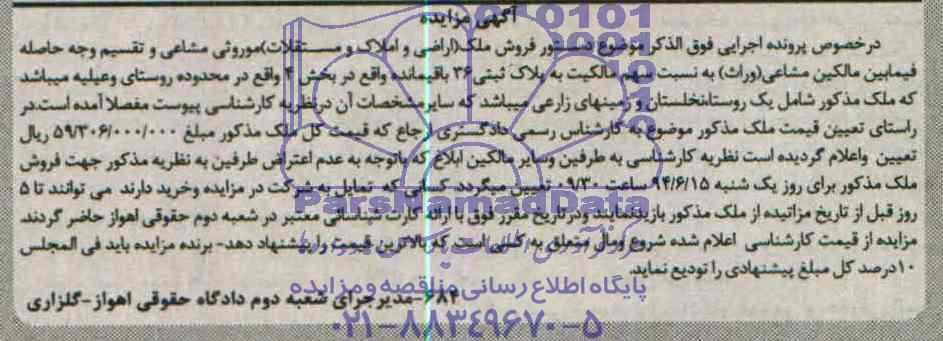 آگهی مزایده
درخصوص پرونده اجرایی فوق الذکر موضوع دستور فروش ملک(اراضی و املاک و مستقلات)موروثی مشاعی و تقسیم وجه حاصله
فیمابین مالکین مشاعی(وراث) به نسبت سهم مالکیت به پلاک ثبتی۳۶ باقیمانده واقع در بخش ۴ واقع در محدوده روستای وعیلیه میباشد
که ملک مذکور شامل یک روستا،نخلستان و زمینهای زارعی میباشد که سایر مشخصات آن درنظریه کارشناسی پیوست مفصلا آمده است.در
راستای تعیین قیمت ملک مذکور موضوع به کارشناس رسمی دادگستری ارجاع که قیمت کل ملک مذکور مبلغ ۵۹/۳۰۶/۰۰۰/۰۰۰ ریال
تعیین واعلام گردیده است نظریه کارشناسی به طرفین وسایر مالکین ابلاغ که باتوجه به عدم اعتراض طرفین به نظریه مذکور جهت فروش
ملک مذکور برای روز یک شنبه ۹۴/۶/۱۵ ساعت ۰۹/۳۰ تعیین میگردد کسانی که تمایل به شرکت در مزایده وخرید دارند می توانند تا ۵
روز قبل از تاریخ مزاتیده از ملک مذکور بازیدنمایند ودرتاریخ مقرر فوق با ارائه کارت شناسائی معتبر در شعبه دوم حقوقی اهواز حاضر گردند.
مزایده از قیمت کارشناسی اعلام شده شروع ومال متعلق به کسی است که بالاترین قیمت را پیشنهاد دهد- برنده مزایده باید فی المجلس
۱۰درصد کل مبلغ پیشنهادی را تودیع نماید.
۶۸۴-مدیرجرای شعبه دوم دادگاه حقوقی اهواز-گلزاری
ParsNamadData
پایگاه اطلاع رسانی مناقصه ومزایده
۰۲۱-۸۸۳۴۹۶۷۰-۵